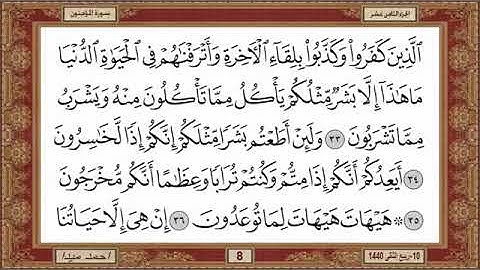 سورة المؤمنون
الجزء الثامن عشر
الَّذِينَ كَفَرُوا۟ وَكَذَّبُوا۟ بِلِقَآءِ ٱلْأَخِرَةِ وَأَتْرَفْنَٰهُمْ فِى ٱلْحَيَوٰةِ ٱلدُّنْيَا
مَا هَٰذَآ إِلَّا بَشَرٌ مِّثْلُكُمْ يَأْكُلُ مِمَّا تَأْكُلُونَ مِنْهُ وَيَشْرَبُ
مِمَّا تَشْرَبُونَ ٣٣ وَلَئِنْ أَطَعْتُم بَشَرًا مِّثْلَكُمْ إِنَّكُمْ إِذًا لَّخَٰسِرُونَ
٣٤ أَيَعِدُكُمْ أَنَّكُمْ إِذَا مِتُّمْ وَكُنتُمْ تُرَابًا وَعِظَٰمًا أَنَّكُم مُّخْرَجُونَ
٣٥ ۞ هَيْهَاتَ هَيْهَاتَ لِمَا تُوعَدُونَ ٣٦ إِنْ هِىَ إِلَّا حَيَاتُنَا
8
10-ربيع الثاني 1440